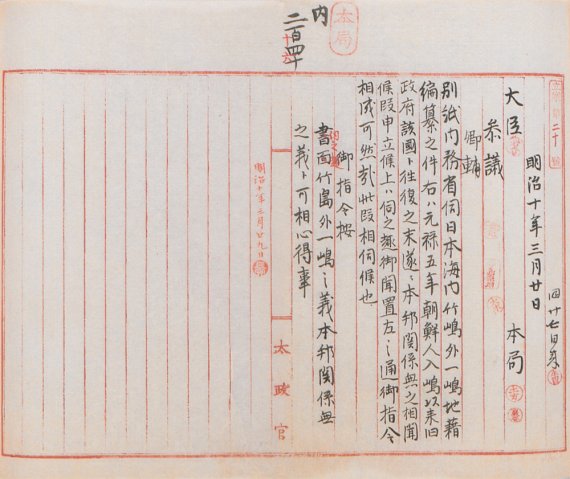 本局
内
二百四十
同廿七日来
明治十年三月廿日 本局
大臣
参議
卿輔
別紙内務省伺日本海内竹嶋外一嶋地籍
編纂之件右ハ元禄五年朝鮮人入嶋以来旧
政府該国ト往復之末遂ニ本邦関係無之相聞
候段申立候上ハ伺之趣御聞置左之通御指令
相成可然哉此段相伺候也
御指令按
書面竹島外一嶋之義本邦関係無
之義ト可相心得事
明治十年三月廿九日
太政官